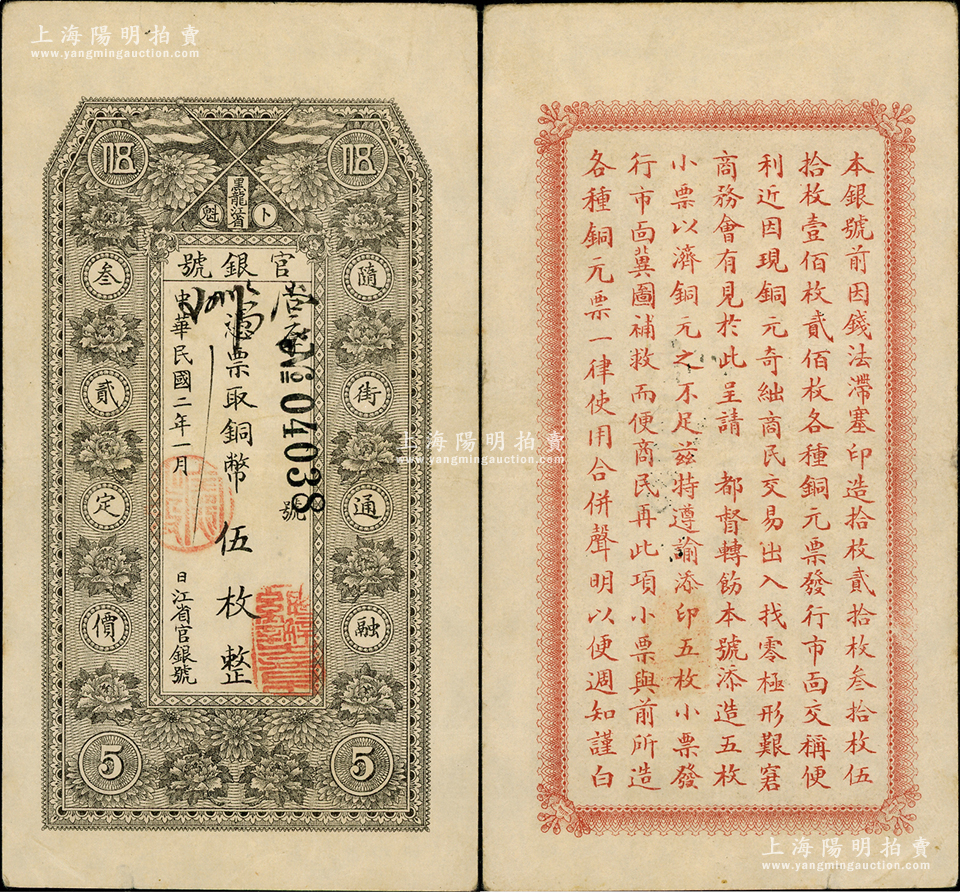 上海陽明拍賣
www.yangmingauction.com
伍
伍
黑龍江省
卜魁
官銀號
隨街通融
叁貳定價
憑票取銅幣伍枚整
04038
號
中華民國二年一月
日江省官銀號
5
5
上海陽明拍賣
www.yangmingauction.com
本銀號前因錢法滯塞印造拾枚貳拾枚叁拾枚伍
拾枚壹佰枚貳佰枚各種銅元票發行市面交稱便
利近因現銅元奇絀商民交易出入找零極形艱窘
商務會有見於此呈請 都督轉飭本號添造五枚
小票以濟銅元之不足茲特遵諭添印五枚小票發
行市面冀圖補救而便商民再此項小票與前所造
各種銅元票一律使用合併聲明以便週知謹白
上海陽明拍賣
www.yangmingauction.com